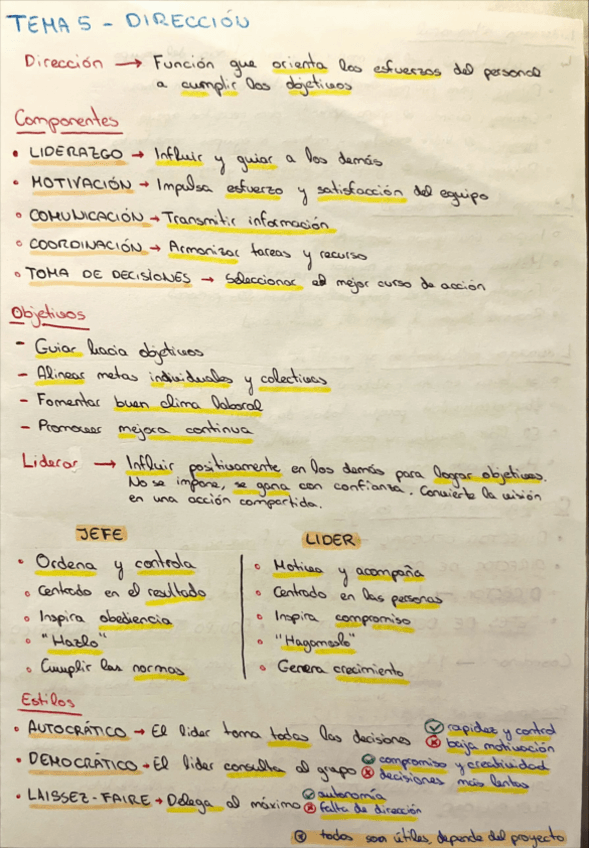 TEMA 5 - DIRECCIÓN
Dirección → Función que orienta los esfuerzos del personal
a cumplir los objetivos
Componentes
• LIDERAZGO → Influir y guiar a los demás
• MOTIVACIÓN → Impulsa esfuerzo y satisfacción del equipo
• COMUNICACIÓN → Transmitir información
• COORDINACIÓN → Armonizar tareas y recurso
• TOMA DE DECISIONES → Seleccionar el mejor curso de acción
Objetivos
- Guiar hacia objetivos
- Alinear metas individuales y colectivas
- Fomentar buen clima laboral
- Promover mejora continua
Liderar → Influir positivamente en los demás para lograr objetivos.
No se impone, se gana con confianza. Convierte la visión
en una acción compartida.
JEFE
• Ordena y controla
• Centrado en el resultado
• Inspira obediencia
• "Hazlo"
• Cumplir las normas
LIDER
• Motiva y acompaña
• Centrado en las personas
• Inspira compromiso
• "Hagamoslo"
• Genera crecimiento
Estilos
• AUTOCRÁTICO → El lider toma todas las decisiones ✓ rapidez y control
✗ baja motivación
• DEMOCRÁTICO → El lider consulta al grupo ✓ compromiso y creatividad
✗ decisiones más lentas
• LAISSEZ-FAIRE → Delega al máximo ✓ autonomía
✗ falta de dirección
* todos son útiles, depende del proyecto